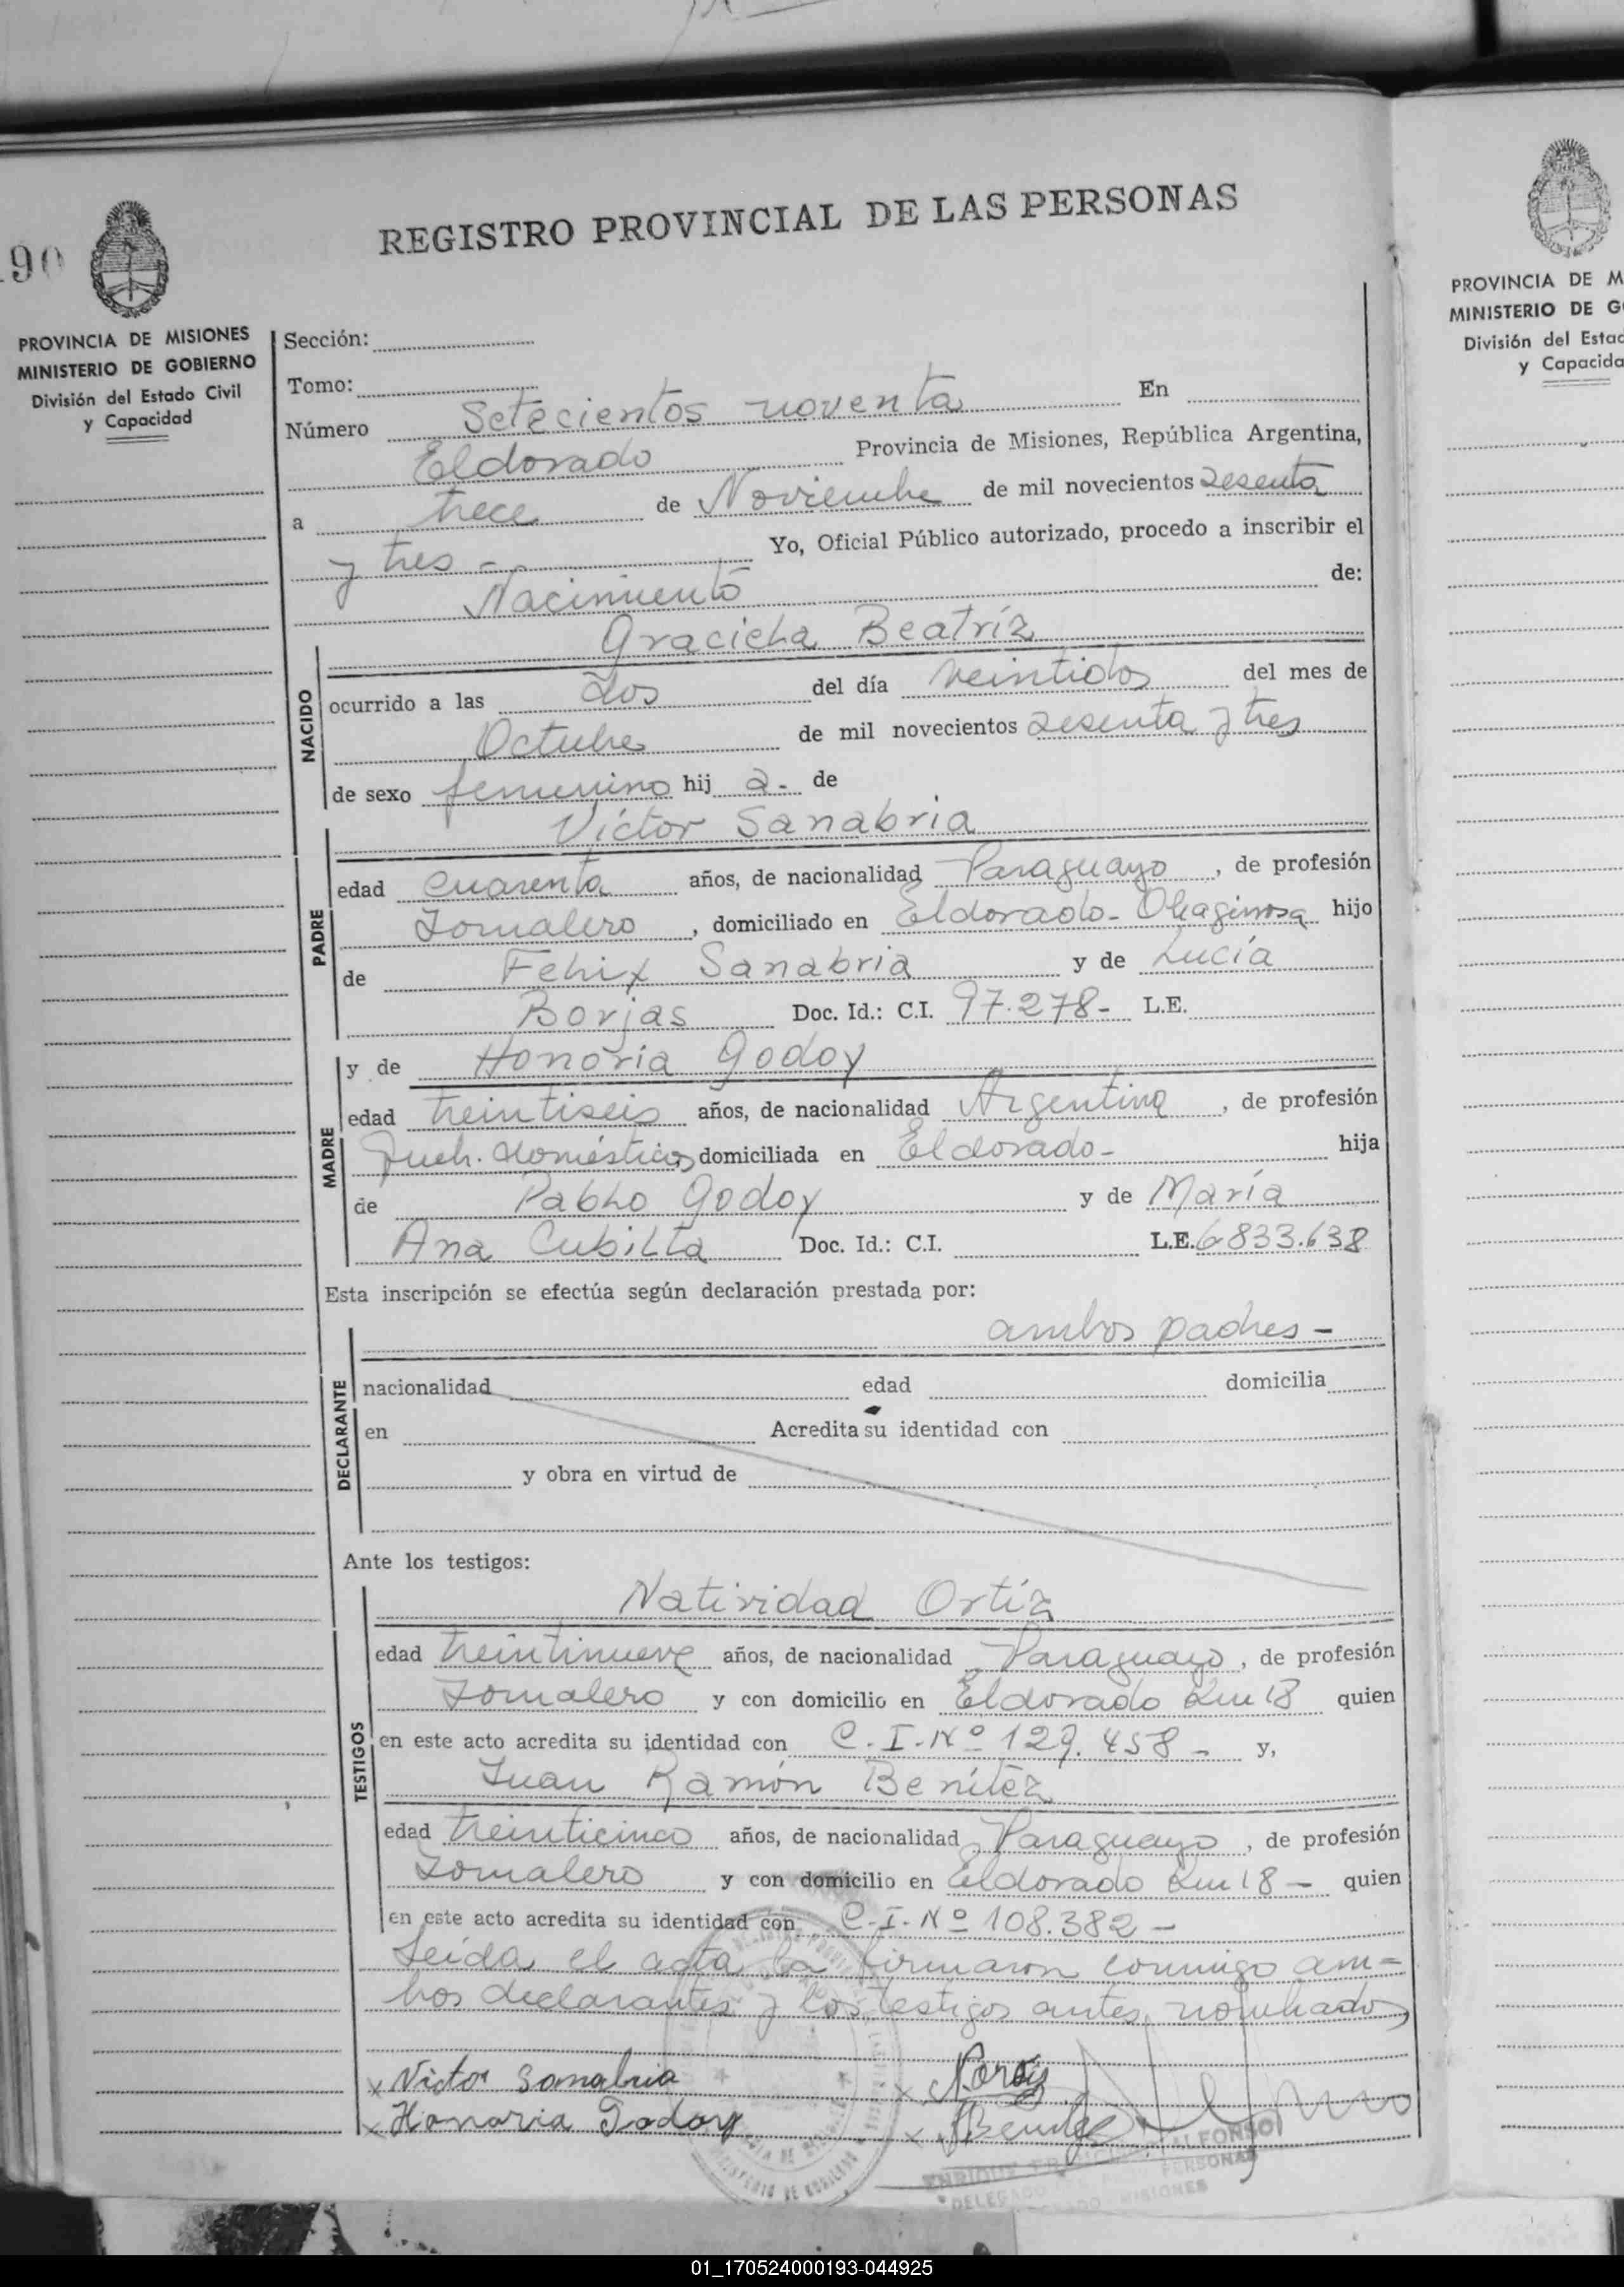 REGISTRO PROVINCIAL DE LAS PERSONAS
190
PROVINCIA DE MISIONES
MINISTERIO DE GOBIERNO
División del Estado Civil
y Capacidad
Sección:
Tomo:
Número Setecientos noventa En
Eldorado Provincia de Misiones, República Argentina,
a trece de Noviembre de mil novecientos sesenta
y tres - Yo, Oficial Público autorizado, procedo a inscribir el
Nacimiento de:
Graciela Beatríz
NACIDO
ocurrido a las dos del día veintidos del mes de
Octubre de mil novecientos sesenta y tres
de sexo femenino hij a - de
Víctor Sanabria
PADRE
edad cuarenta años, de nacionalidad Paraguayo, de profesión
Jornalero, domiciliado en Eldorado - Oleaginosa hijo
de Felix Sanabria y de Lucía
Borjas Doc. Id.: C.I. 97.278- L.E.
y de Honoria Godoy
MADRE
edad treintiseis años, de nacionalidad Argentina, de profesión
domésticos domiciliada en Eldorado - hija
de Pablo Godoy y de María
Ana Cubilla Doc. Id.: C.I. L.E. 6833.638
Esta inscripción se efectúa según declaración prestada por:
ambos padres -
DECLARANTE
nacionalidad edad domicilia
en Acredita su identidad con
y obra en virtud de
Ante los testigos:
Natividad Ortíz
TESTIGOS
edad treintinueve años, de nacionalidad Paraguayo, de profesión
Jornalero y con domicilio en Eldorado Km 18 quien
en este acto acredita su identidad con C.I. Nº 129.458 - y,
Juan Ramón Benítez
edad treinticinco años, de nacionalidad Paraguayo, de profesión
Jornalero y con domicilio en Eldorado Km 18 - quien
en este acto acredita su identidad con C.I. Nº 108.382 -
Leída el acta la firmaron conmigo am=
bos declarantes y los testigos antes nombrados
x Victor Sanabria x
x Honoria Godoy x
ENRIQUE ALFONSO
PERSONAS
MISIONES
PROVINCIA DE M
MINISTERIO DE G
División del Estad
y Capacida
01_170524000193-044925